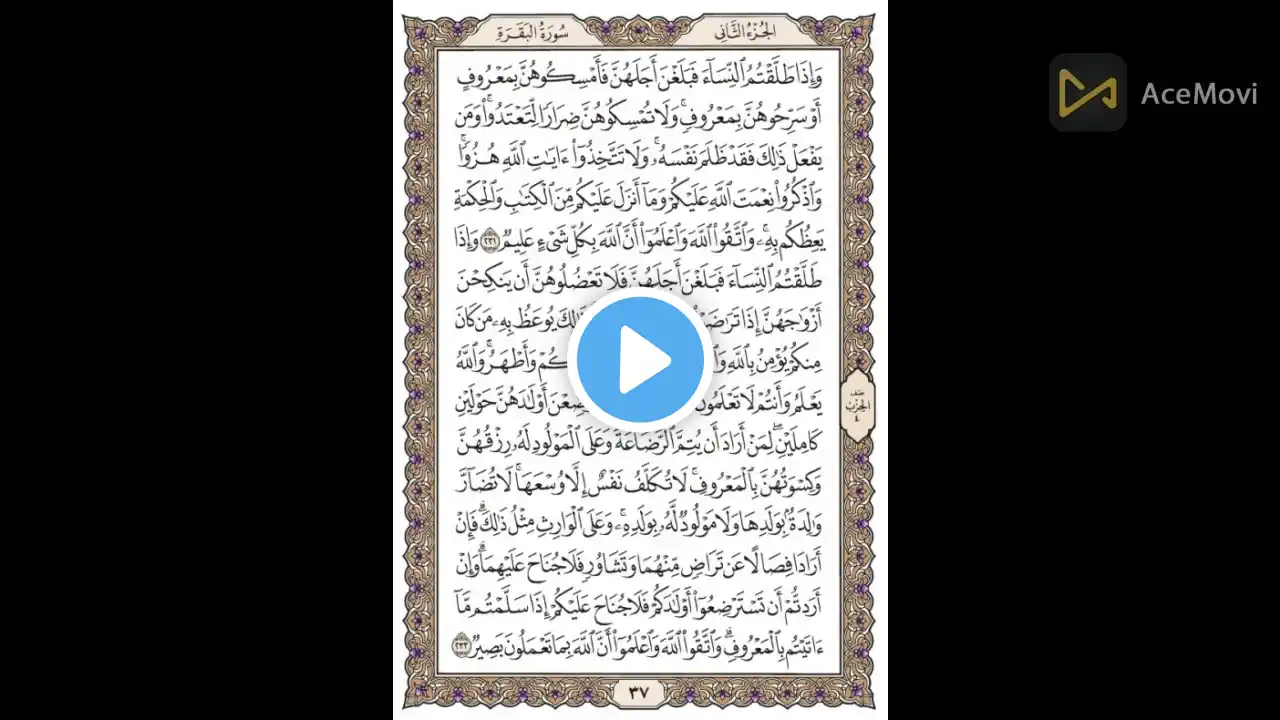 سُورَةُ البَقَرَةِ
الجُزْءُ الثَّانِي
وَإِذَا طَلَّقْتُمُ ٱلنِّسَآءَ فَبَلَغْنَ أَجَلَهُنَّ فَأَمْسِكُوهُنَّ بِمَعْرُوفٍ
أَوْ سَرِّحُوهُنَّ بِمَعْرُوفٖۚ وَلَا تُمْسِكُوهُنَّ ضِرَارٗا لِّتَعْتَدُواْۚ وَمَن
يَفْعَلْ ذَٰلِكَ فَقَدْ ظَلَمَ نَفْسَهُۥۚ وَلَا تَتَّخِذُوٓاْ ءَايَٰتِ ٱللَّهِ هُزُوٗاۚ
وَٱذْكُرُواْ نِعْمَتَ ٱللَّهِ عَلَيْكُمْ وَمَآ أَنزَلَ عَلَيْكُم مِّنَ ٱلْكِتَٰبِ وَٱلْحِكْمَةِ
يَعِظُكُم بِهِۦۚ وَٱتَّقُواْ ٱللَّهَ وَٱعْلَمُوٓاْ أَنَّ ٱللَّهَ بِكُلِّ شَيْءٍ عَلِيمٞ ٢٣١ وَإِذَا
طَلَّقْتُمُ ٱلنِّسَآءَ فَبَلَغْنَ أَجَلَهُنَّ فَلَا تَعْضُلُوهُنَّ أَن يَنكِحْنَ
أَزْوَٰجَهُنَّ إِذَا يُوعَظُ بِهِۦ مَن كَانَ
مِنكُمْ يُؤْمِنُ بِٱللَّهِ وَأَطْهَرُۚ وَٱللَّهُ
يَعْلَمُ وَأَنتُمْ لَا تَعْلَمُونَ أَوْلَٰدَهُنَّ حَوْلَيْنِ
كَامِلَيْنِۖ لِمَنْ أَرَادَ أَن يُتِمَّ ٱلرَّضَاعَةَۚ وَعَلَى ٱلْمَوْلُودِ لَهُۥ رِزْقُهُنَّ
وَكِسْوَتُهُنَّ بِٱلْمَعْرُوفِۚ لَا تُكَلَّفُ نَفْسٌ إِلَّا وُسْعَهَاۚ لَا تُضَآرَّ
وَٰلِدَةُۢ بِوَلَدِهَا وَلَا مَوْلُودٞ لَّهُۥ بِوَلَدِهِۦۚ وَعَلَى ٱلْوَارِثِ مِثْلُ ذَٰلِكَۗ فَإِنْ
أَرَادَا فِصَالًا عَن تَرَاضٖ مِّنْهُمَا وَتَشَاوُرٖ فَلَا جُنَاحَ عَلَيْهِمَاۗ وَإِنْ
أَرَدتُّمْ أَن تَسْتَرْضِعُوٓاْ أَوْلَٰدَكُمْ فَلَا جُنَاحَ عَلَيْكُمْ إِذَا سَلَّمْتُم مَّآ
ءَاتَيْتُم بِٱلْمَعْرُوفِۗ وَٱتَّقُواْ ٱللَّهَ وَٱعْلَمُوٓاْ أَنَّ ٱللَّهَ بِمَا تَعْمَلُونَ بَصِيرٞ ٢٣٣
نصف
الحِزْب
٤
٣٧
AceMovi